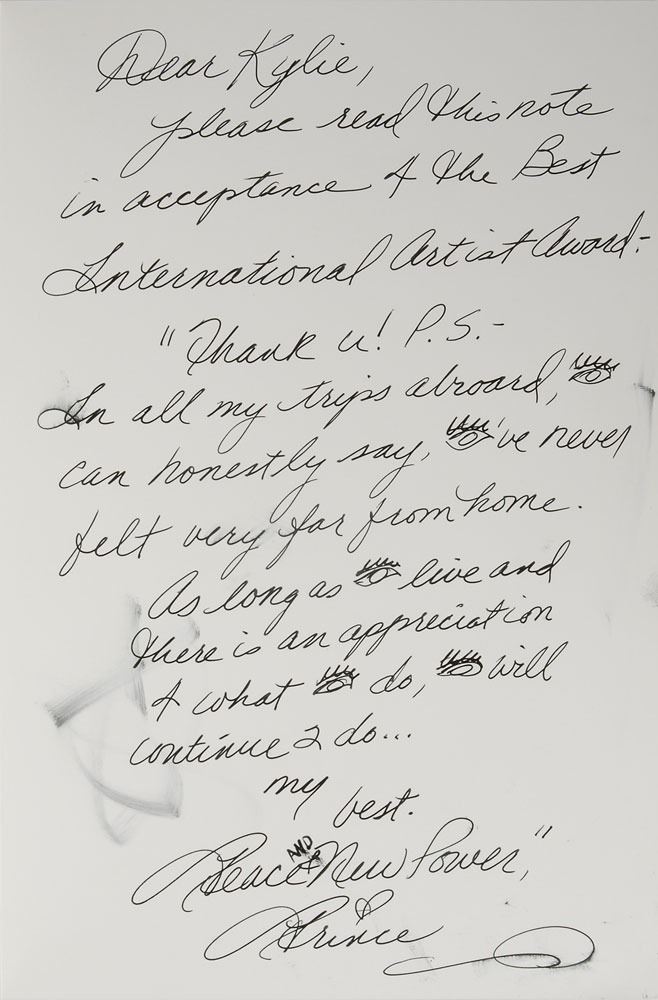 Dear Kylie,
please read this note
in acceptance 4 the Best
International Artist Award-
"Thank u! P.S.-
In all my trips abroad, 👁
can honestly say, 👁've never
felt very far from home.
As long as 👁 live and
there is an appreciation
4 what 👁 do, 👁 will
continue 2 do...
my
best.
Peace AND New Power,"
Prince